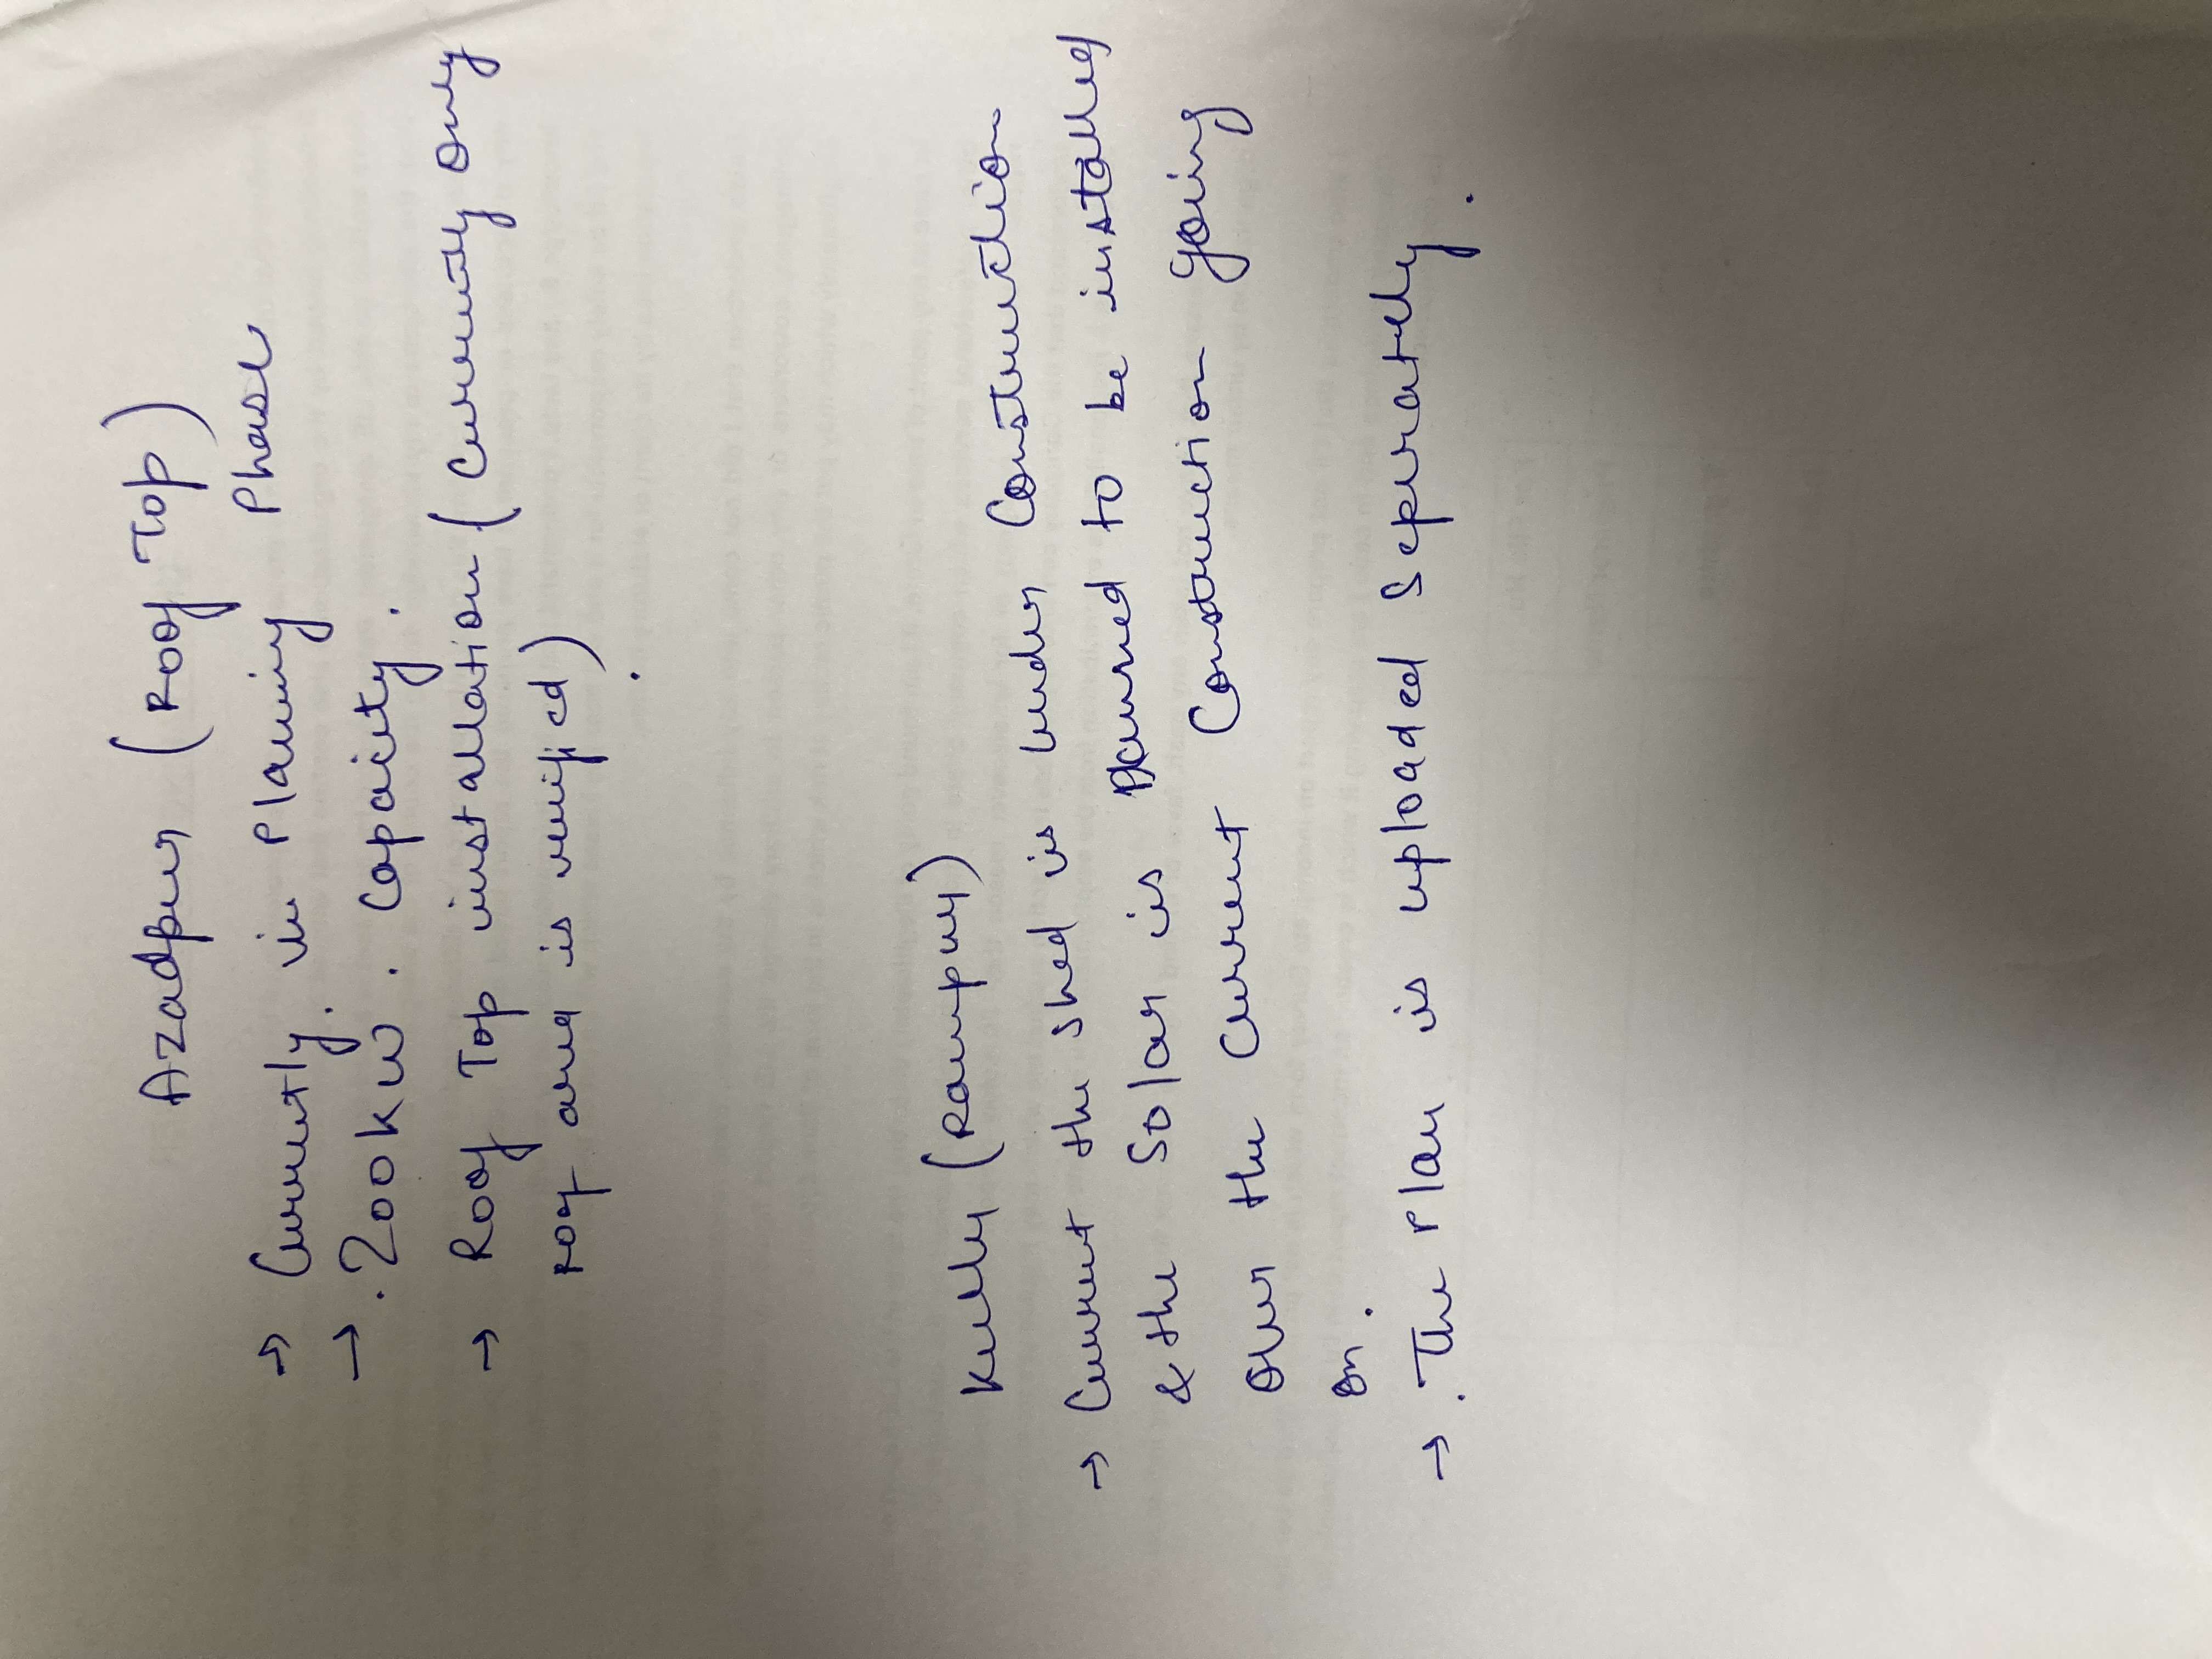 Azadpur (Roof Top)
→ Currently. in Planing Phase
→ . 200 kw . Capaicity .
→ Roof Top installation (Currently only
roof area is verified) .
(Rampur)
→ Current the shed is under Construction
& the Solar is planned to be installed
over the current Construction going
on .
→ . The Plan is uploaded Seperately .